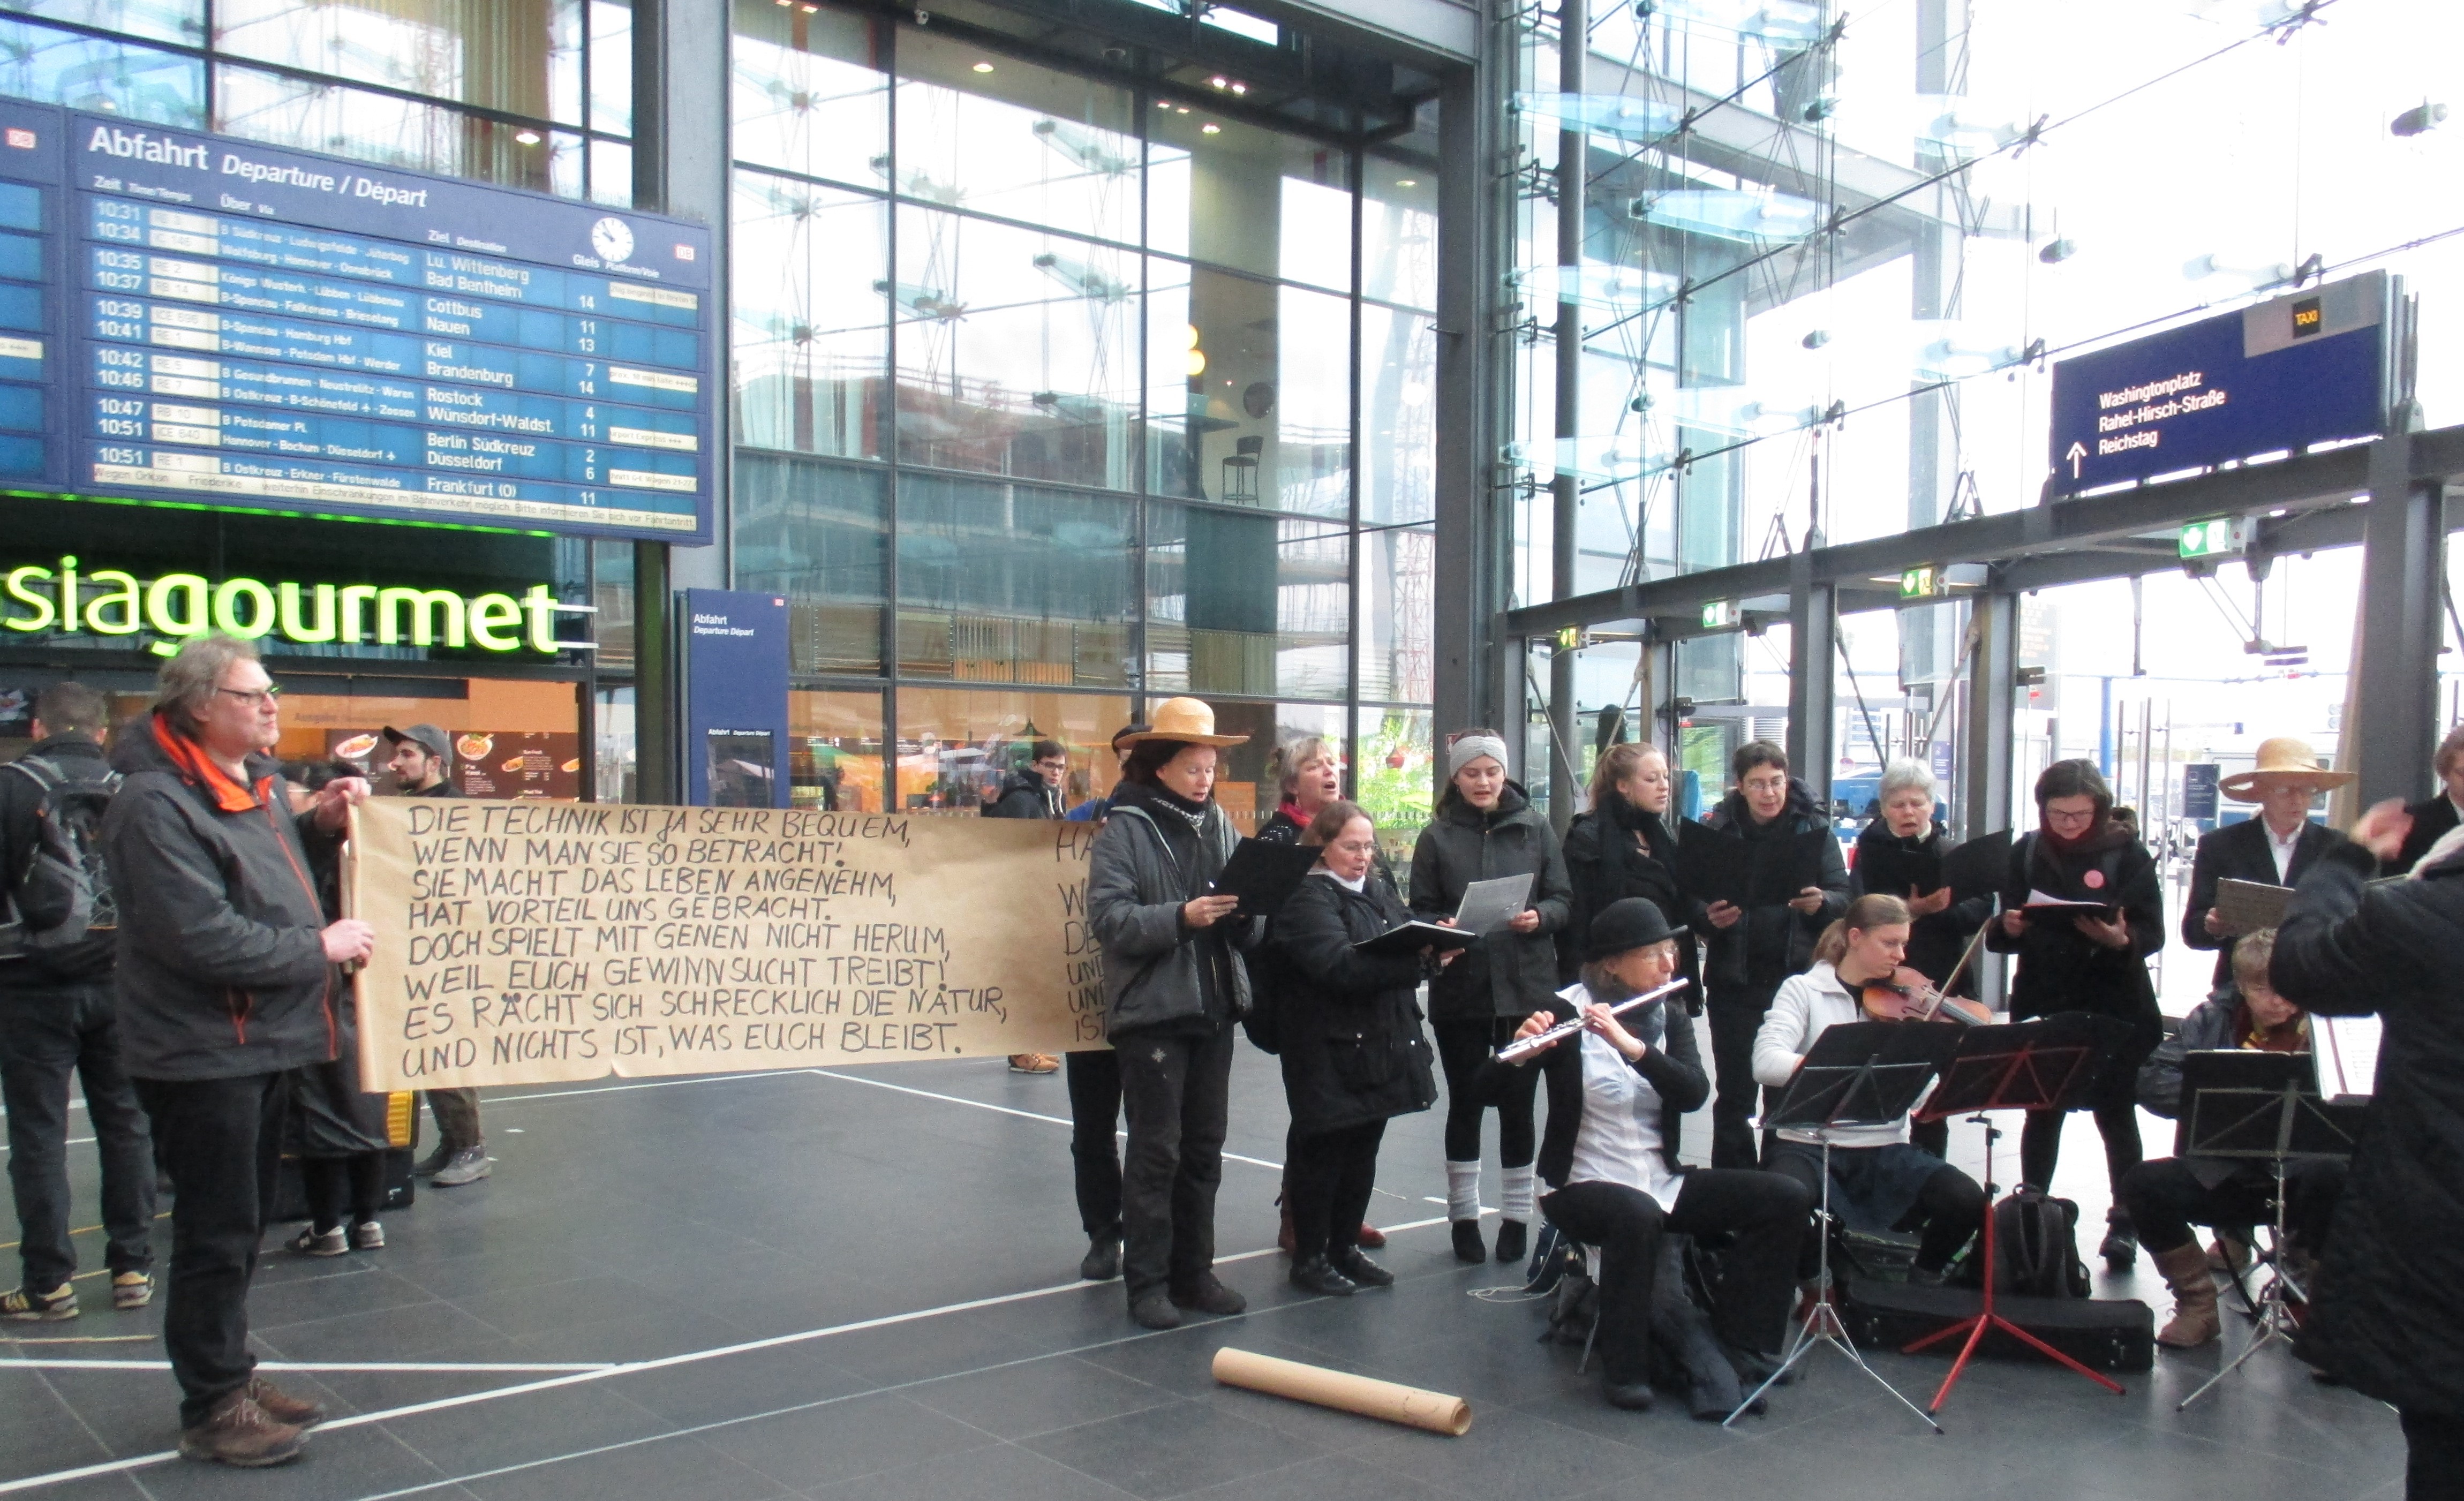 Abfahrt Departure / Départ
Zeit Time/Temps Über Via Ziel Destination Gleis Platform/Voie
10:31 RE 3 B Südkreuz - Ludwigsfelde - Jüterbog Lu. Wittenberg
10:34 IC 146 Wolfsburg - Hannover - Osnabrück Bad Bentheim 14
10:35 RE 2 Königs Wusterh. - Lübben - Lübbenau Cottbus 11
10:37 RB 14 B-Spandau - Falkensee - Brieselang Nauen 13
10:39 B-Spandau - Hamburg Hbf Kiel 7
10:41 RE 1 B-Wannsee - Potsdam Hbf - Werder Brandenburg 14
10:42 RE 5 B Gesundbrunnen - Neustrelitz - Waren Rostock 4
10:46 RE 7 B Ostkreuz - B-Schönefeld - Zossen Wünsdorf-Waldst. 11 Airport Express
10:47 RB 10 B Potsdamer Pl. Berlin Südkreuz 2
10:51 ICE 640 Hannover - Bochum - Düsseldorf Düsseldorf 6
10:51 RE 1 B Ostkreuz - Erkner - Fürstenwalde Frankfurt (O) 11
Wegen Orkan Friederike weiterhin Einschränkungen im Bahnverkehr möglich. Bitte informieren Sie sich vor Fahrtantritt.
siagourmet
Abfahrt
Departure Départ
Abfahrt Departure Départ
TAXI
Washingtonplatz
Rahel-Hirsch-Straße
Reichstag
DIE TECHNIK IST JA SEHR BEQUEM,
WENN MAN SIE SO BETRACHT!
SIE MACHT DAS LEBEN ANGENEHM,
HAT VORTEIL UNS GEBRACHT.
DOCH SPIELT MIT GENEN NICHT HERUM,
WEIL EUCH GEWINNSUCHT TREIBT!
ES RÄCHT SICH SCHRECKLICH DIE NATUR,
UND NICHTS IST, WAS EUCH BLEIBT.
HA
W
DE
UND
UND
IST